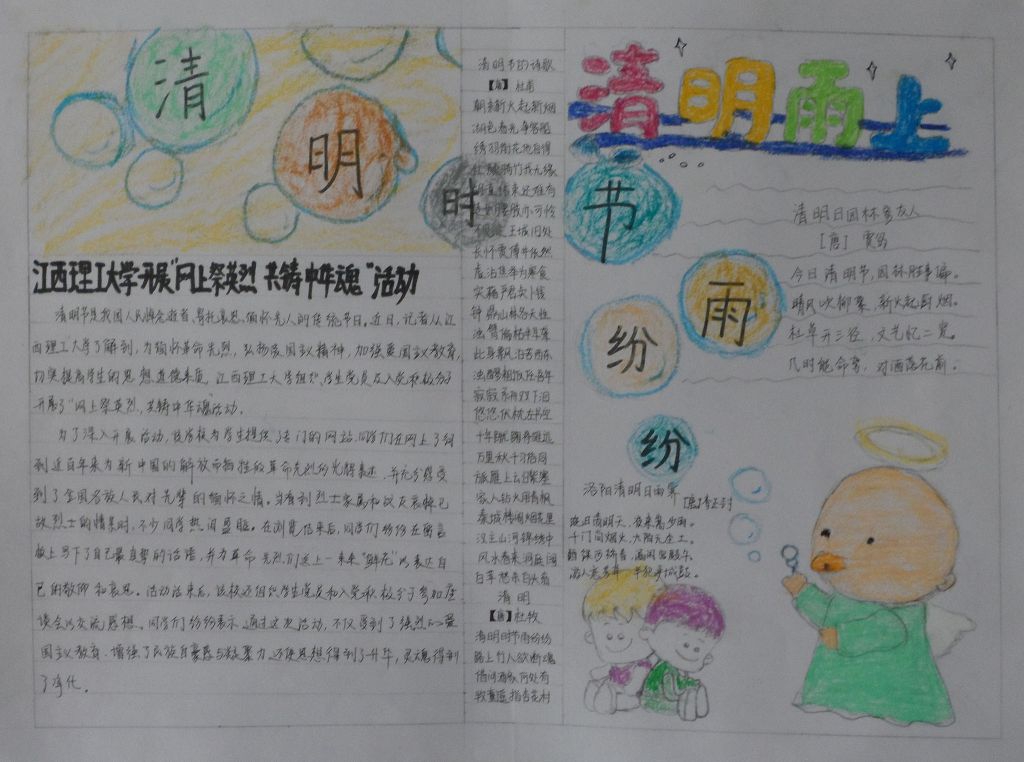 清
明
时
节
雨
纷
纷
清明雨上
江西理工大学开展"网上祭英烈 共铸中华魂"活动
清明节是我国人民悼念逝者、寄托哀思、缅怀先人的传统节日。近日，记者从江
西理工大学了解到，为缅怀革命先烈，弘扬爱国主义精神，加强爱国主义教育，
切实提高学生的思想道德素质，江西理工大学组织学生党员及入党积极分子
开展了"网上祭英烈、共铸中华魂"活动。
为了深入开展活动，该学校为学生提供了专门的网站，同学们在网上了解
到近百年来为新中国的解放而牺牲的革命先烈的光辉事迹，并充分感受
到了全国各族人民对先辈的缅怀之情。当看到烈士家属和战友哀悼已
故烈士的情景时，不少同学热泪盈眶。在浏览结束后，同学们纷纷在留言
板上写下了自己最真挚的话语，并为革命先烈们送上一束束"鲜花"以表达自
己的敬仰和哀思。活动结束后，该校还组织学生党员和入党积极分子参加座
谈会以交流感想。同学们纷纷表示，通过这次活动，不仅受到了强烈的爱
国主义教育，增强了民族自豪感与凝聚力，还使思想得到了升华，灵魂得到
了净化。
清明节的诗歌
【唐】杜甫
朝来新火起新烟
湖色春光净客船
绣羽衔花他自得
王城旧处
长怀贾傅井依然
虚沾焦举为寒食
实藉严君卖卜钱
钟鼎山林各天性
浊醪粗饭任吾年
此身飘泊苦西东
右臂偏枯半耳聋
寂寂系舟双下泪
悠悠伏枕左书空
十年蹴鞠将雏远
万里秋千习俗同
旅雁上云归紫塞
家人钻火用青枫
秦城楼阁烟花里
汉主山河锦绣中
风水春来洞庭阔
白苹愁杀白头翁
清明
【唐】杜牧
清明时节雨纷纷
路上行人欲断魂
借问酒家何处有
牧童遥指杏花村
清明日园林寄友人
【唐】贾岛
今日清明节，园林胜事偏。
晴风吹柳絮，新火起厨烟。
杜草开三径，文章忆二贤。
几时能命驾，对酒落花前。
洛阳清明日雨霁
【唐】李正封
晓日清明天，夜来嵩少雨。
千门尚烟火，九陌无尘土。
酒绿河桥春，漏闲宫殿午。
游人恋芳草，半犯严城鼓。